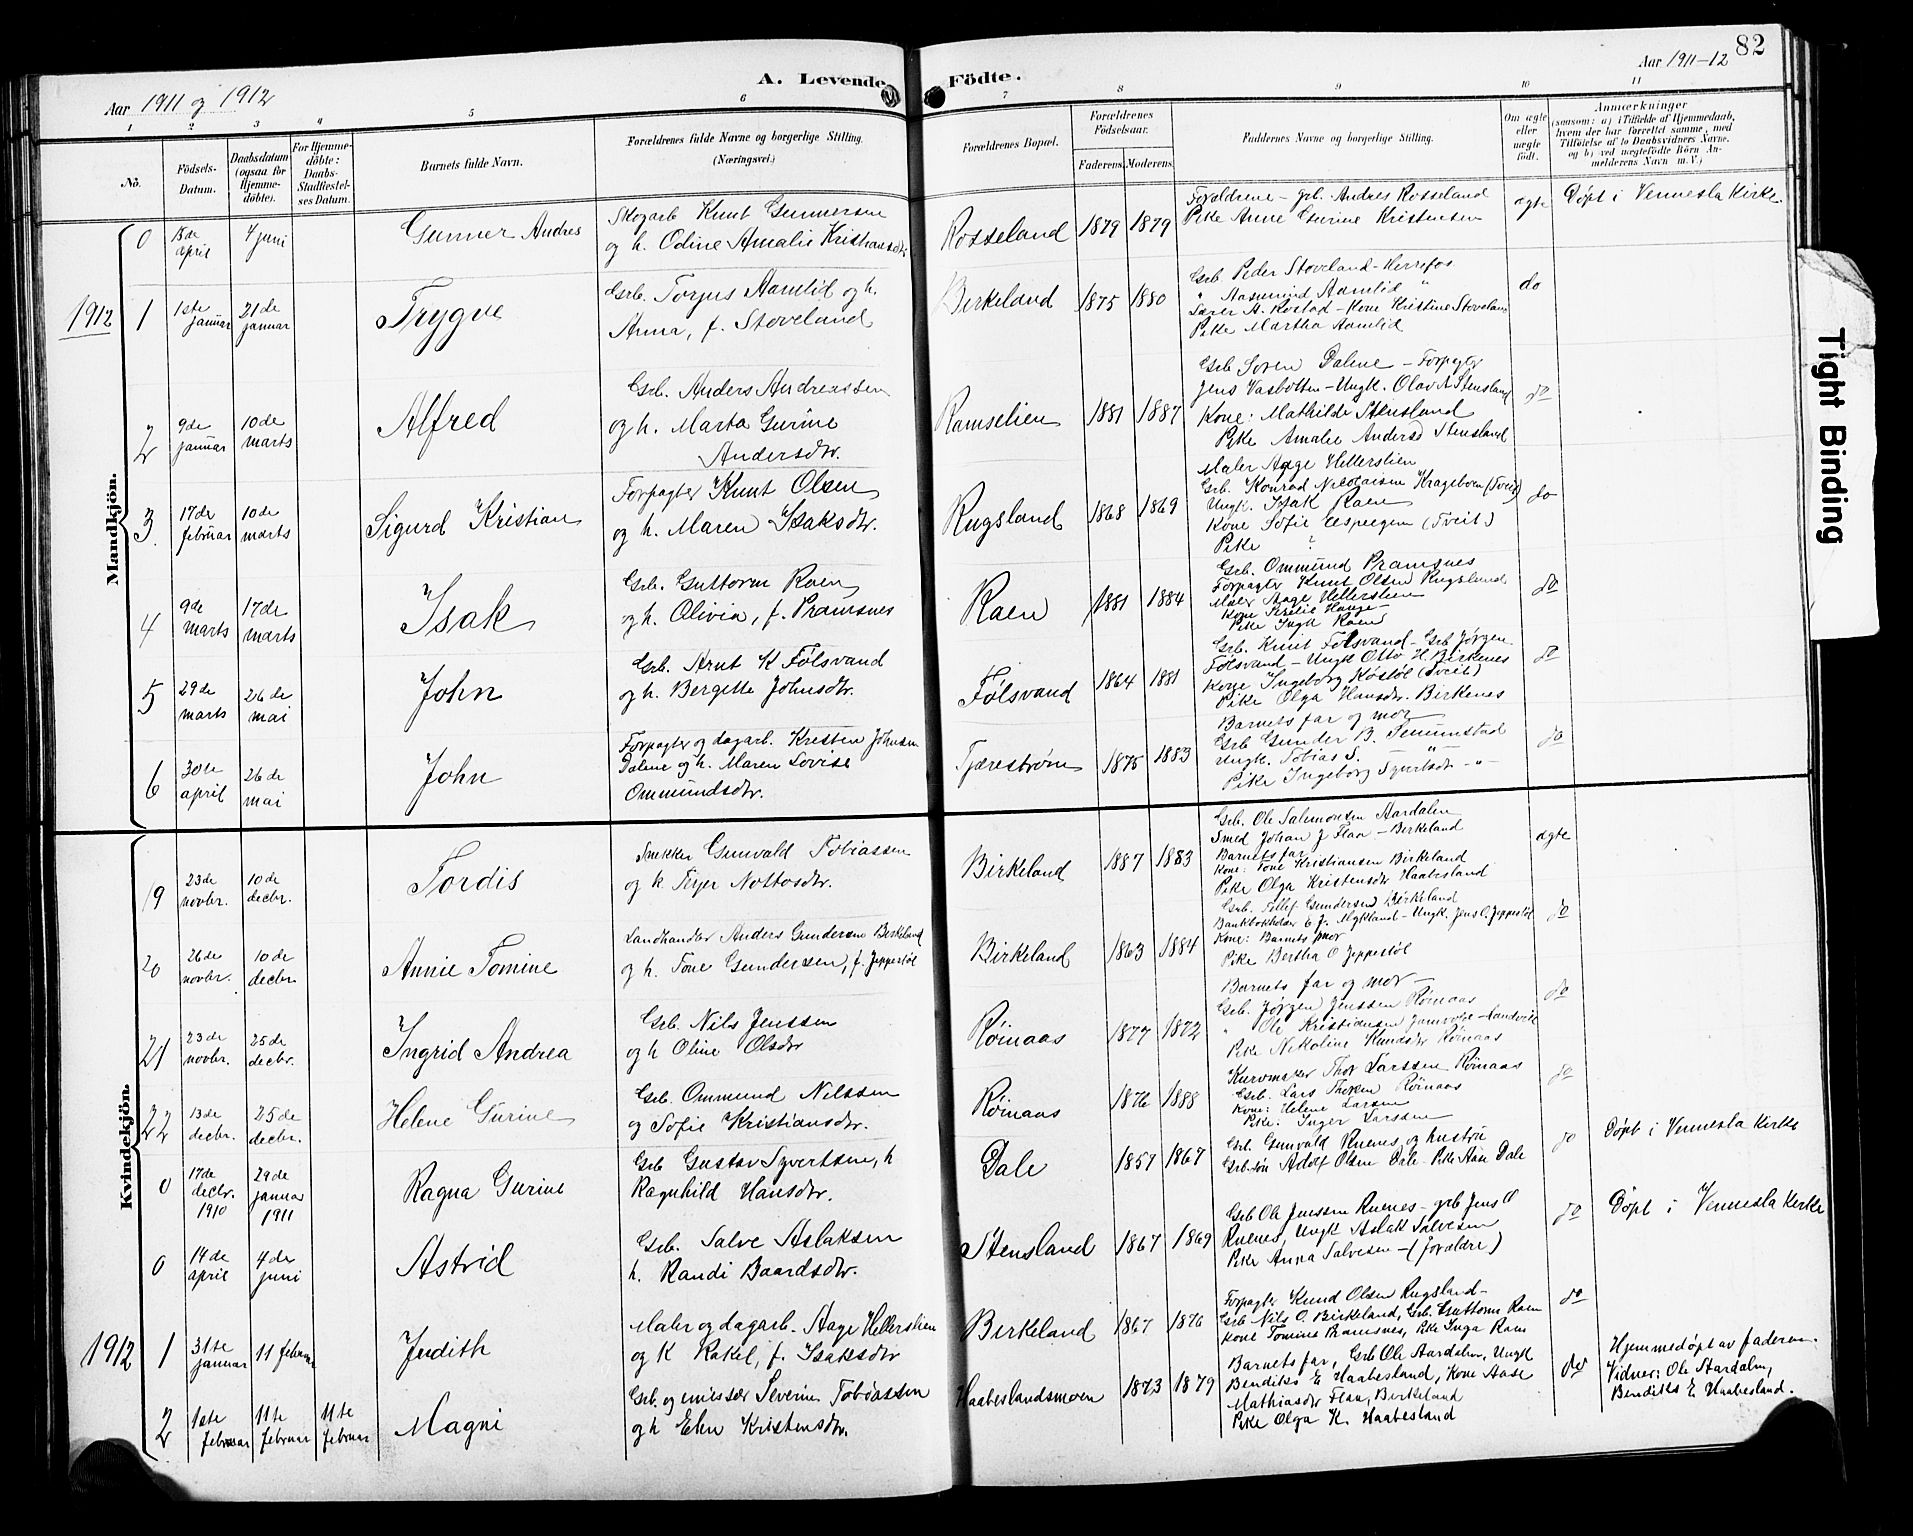 82
A. Levende Födte.
Aar 1911 og 1912
Aar 1911-12
1 2 3 4 5 6 7 8 9 10 11
No.
Födsels-Datum.
Daabsdatum (ogsaa for Hjemmedöbte).
For Hjemmedöbte: Daabs-Stadfæstelses Datum.
Barnets fulde Navn.
Forældrenes fulde Navne og borgerlige Stilling. (Næringsvei.)
Forældrenes Bopæl.
Forældrenes Födselsaar.
Faderens. Moderens.
Faddernes Navne og borgerlige Stilling.
Om ægte eller uægte födt.
Anmærkninger
(saasom: a) i Tilfælde af Hjemmedaab, hvem der har forrettet samme, med Tilföielse af to Daabsvidners Navne, og b) ved uægtefödte Börn Anmelderens Navn m. V.)
Mandkjön.
0 18de april 4 juni Gunner Andres
Skogarb Knut Gunnersen
og h. Odine Amalie Kristiansdtr
Rosseland 1879 1879
Forældrene - grb. Andres Rosseland
Pike Anne Gurine Kristensen
ægte Døpt i Vennesla Kirke
1912 1 1ste januar 21de januar Trygve
Grb. Torjus Aamlid og h.
Anna, f. Stoveland
Birkeland 1875 1880
Grb. Peder Stoveland - Herrefos
" Aasmund Aamlid "
Kone Kristine Stoveland
Pike Martha Aamlid
do
2 9de januar 10de marts Alfred
Grb. Anders Andreassen
og h. Marta Gurine
Andersdtr.
Ramselien 1881 1887
Grb Soren Dalene - Forpagter
Jens Vasbotten - Ungk. Olav A Stensland
Kone: Mathilde Stensland
Pike Amalie Andersd Stensland
do
3. 17de februar 10de marts Sigurd Kristian
Forpagter Knut Olsen
og h. Maren Isaksdtr.
Rugsland 1868 1869
Maler Aage Hellerslien
Grb. Konrad Nicolaisen Krageboen (Tveit)
Ungk. Isak Raen
Kone Sofie Uespeegen (Tveit)
Pike ?
do
4 9de marts 17de marts Isak
Grb. Guttorm Raen
og h. Olivia, f. Pramsnes
Raen 1881 1884
Grb. Ommund Pramsnes
Forpagter Knut Olsen Rugsland
Maler Aage Hellerslien
Kone Hauge -
Pike Raen
do
5 29de marts 26de mai John
Grb. Arnt K Følsvand
og h. Bergitte Johnsdtr.
Følsvand 1864 1881
Grb. Knut Følsvand - Grb Jörgen
Følsvand - Ungk Otto H. Birkenes
Kone Ingeborg Kostøl (Tveit)
Pike Olga Hansdtr. Birkenes
do
6 30te april 26de mai John
Forpagter og dagarb. Kresten Johnsen
Dalene og h. Maren Lovise
Ommundsdtr.
Tjærestrøm 1875 1883
Barnets far og mor
Grb Gunder B. Senumstad
Ungk. Tobias S. - " -
Pike Ingeborg Syvertsdtr - " -
do
Kvindekjön.
19 23de novbr. 10de decbr. Tordis
Snekker Gunvald Tobiassen
og h Terjer Nottosdtr.
Birkeland 1887 1883
Grb. Ole Salmonsen Aardalen
Smed Johan J Flaa - Birkeland
Barnets far
Kone: Tone Kristiansen Birkeland
Pike Olga Kristensdtr Haabesland
ægte
20 26de novbr. 10de decbr Annie Tomine
Landhandler Anders Gundersen Birkeland
og h. Tone Gundersen, f. Jeppestøl
Birkeland 1863 1884
Grb. Tellef Gundersen Birkeland
Bankbokholder E J. Mykland - Ungk. Jens O. Jeppestøl
Kone: Barnets mor
Pike Bertha O Jeppestøl
do
21 23de novbr. 25de decbr. Ingrid Andrea
Grb. Nils Jenssen
og h Oline Olsdtr
Røinaas 1877 1872
Barnets far og mor -
Grb. Jørgen Jenssen Røinaas
" Ole Kristiansen
Pike Nikoline Knudsdtr Røinaas
do
22 13de decbr. 25de decbr. Helene Gurine
Grb. Ommund Nilssen
og Sofie Kristiansdtr.
Røinaas 1876 1888
Kurvmaker Thor Larssen Røinaas
Grb. Lars Thorsen Røinaas
Kone: Helene Larsen
Pike: Inger Larssen
do
0 17de decbr. 1910 29de januar 1911 Ragna Gurine
Grb Gustav Syvertsen, h
Ragnhild Hansdtr.
Dale 1857 1867
Grb. Gunvald Ruenes og hustru
Grb.søn Adolf Olsen Dale - Pike Aase Dale
do Døpt i Vennesla Kirke
0 14de april 4de juni Astrid
Grb. Salve Aslaksen
h. Randi Baardsdtr.
Stensland 1867 1869
Grb Ole Jenssen Ruenes - grb Jens O
Ruenes, Ungk Aslak Salvesen
Pike Anna Salvesen - (forældre)
do Døpt i Vennesla Kirke
1912 1 31te januar 11 februar Judith
Maler og dagarb. Aage Hellerslien
og K Rakel, f. Isaksdtr
Birkeland 1867 1876
Forpagter Knud Olsen Rugsland -
Grb Nils O. Birkeland, Grb. Guttorm Raen
Kone Tomine Pramsnes, Pike Inga Raen
do
2 1ste februar 11te februar 11te februar Magni
Grb. og emissær Severin Tobiassen
og h Elen Kristensdtr.
Haabeslandsmoen 1873 1879
Barnets far, Grb Ole Aardalen, Ungk
Bendiks E Haabesland, Kone Aase
Mathiasdtr Flaa, Birkeland
Pike Olga K. Haabesland
do
Hjemmedøpt av faderen.
Vidner: Ole Aardalen,
Bendiks E Haabesland.
Tight Binding